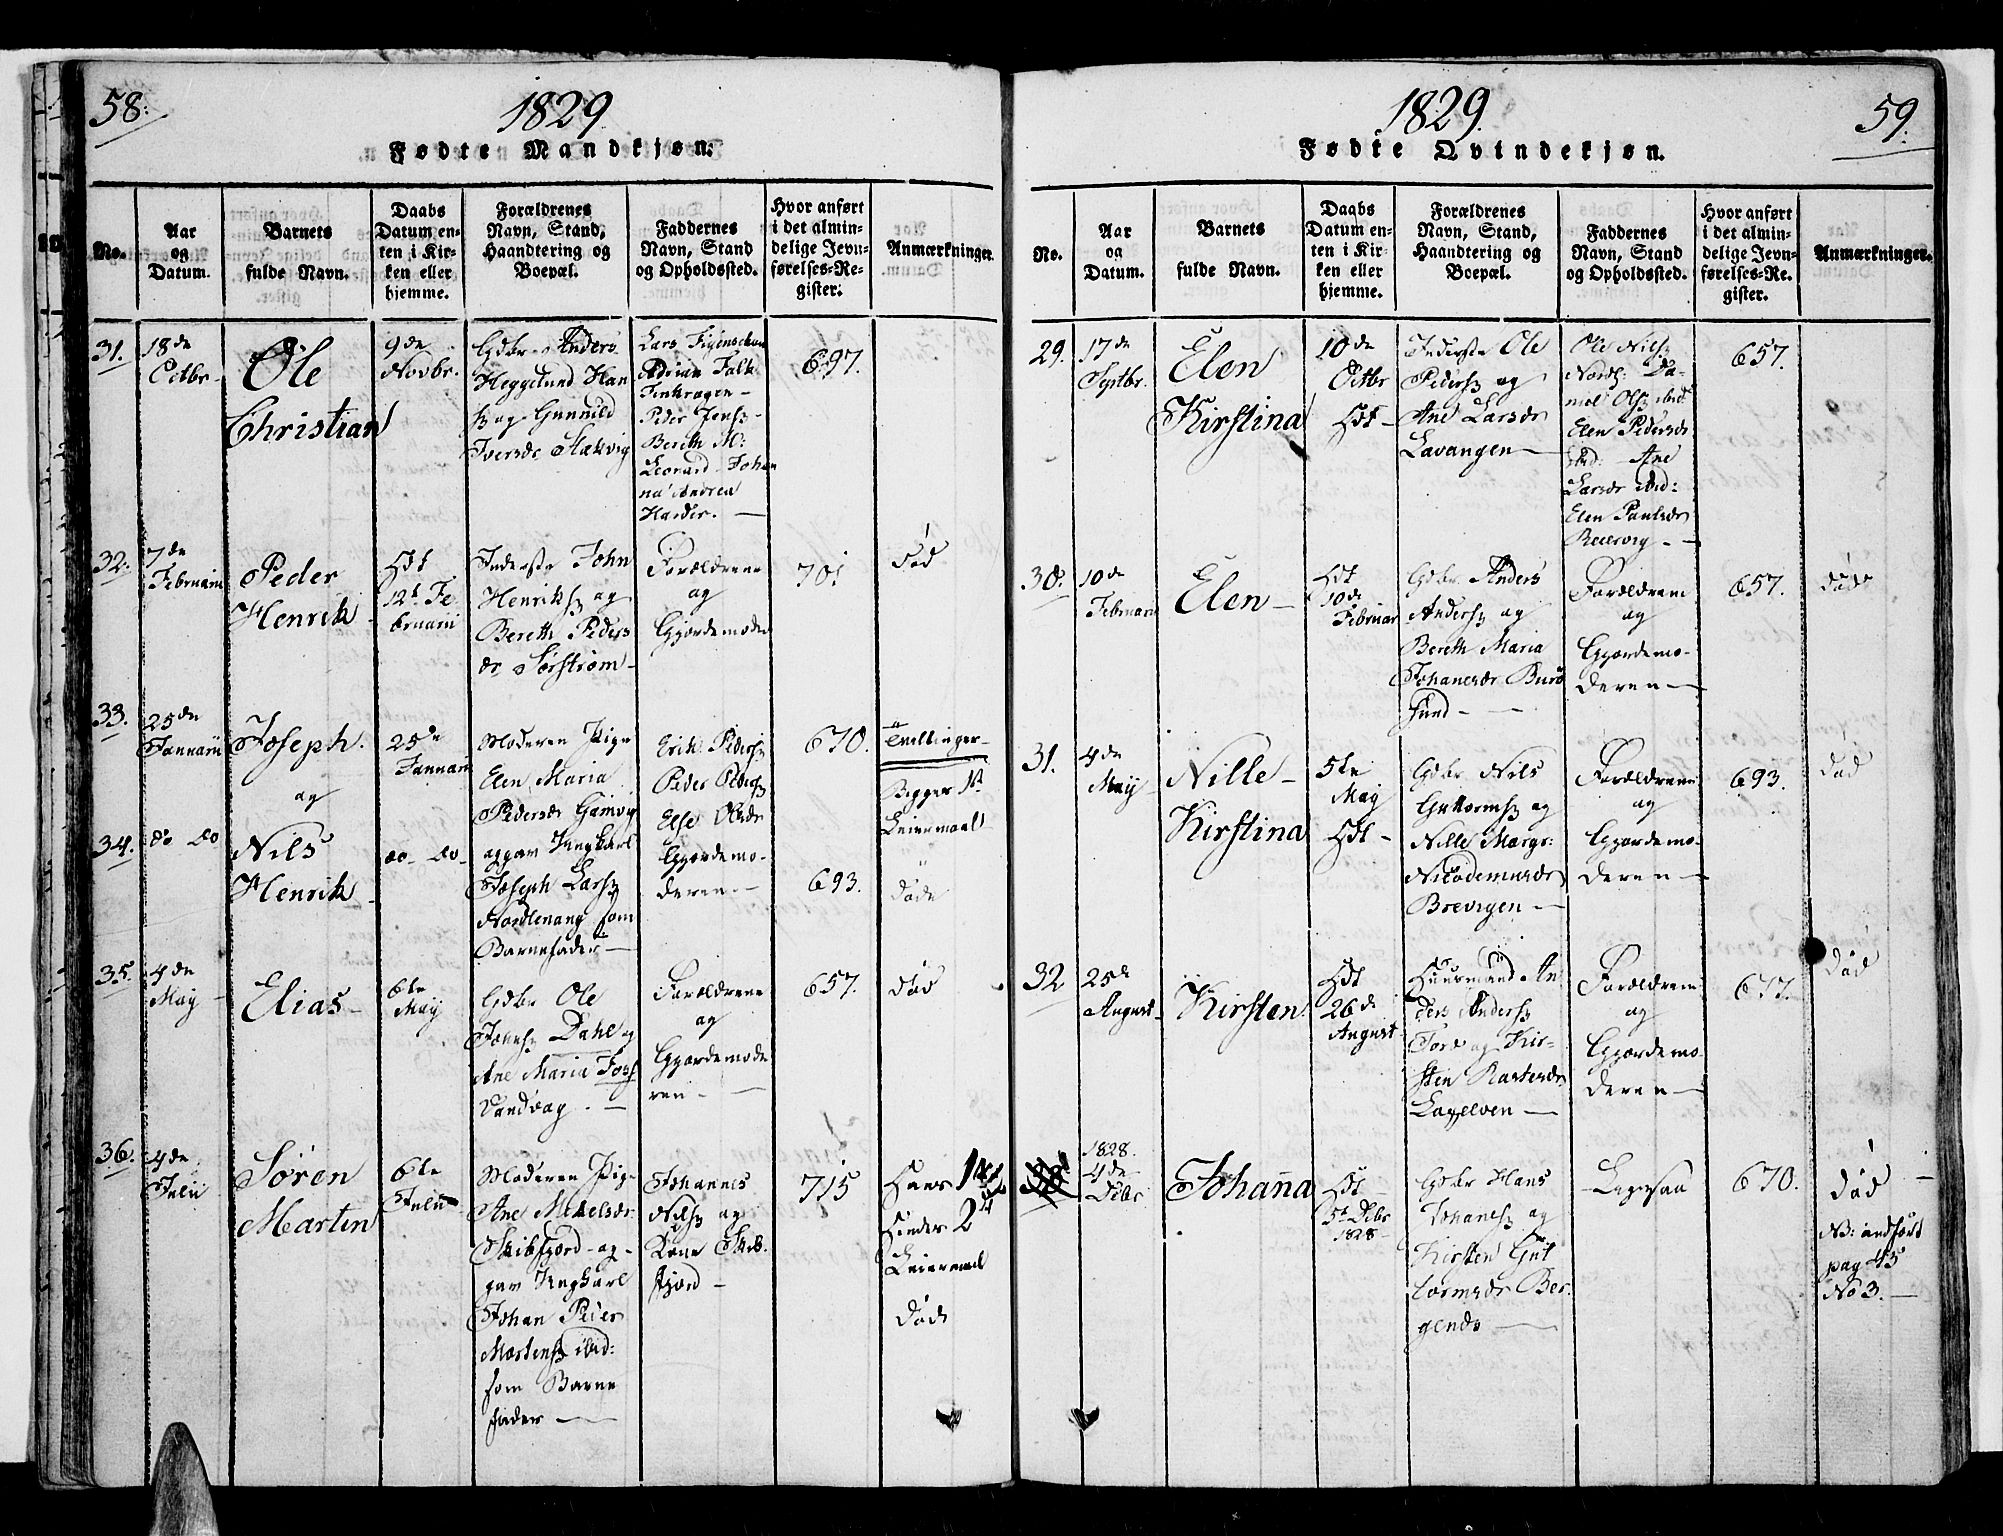 58.
1829
Fødte Mandkjøn.
No.
Aar
og
Datum.
Barnets
fulde Navn.
Daabs
Datum en-
ten i Kir-
ken eller
hjemme.
Forældrenes
Navn, Stand,
Haandtering og
Boepæl.
Faddernes
Navn, Stand
og Opholdssted.
Hvor anført
i det almin-
delige Jevn-
førelses-Re-
gister.
Anmærkninger.
31.
18de
Octbr.
Ole
Christian
9de
Novbr.
Gdbr. Anders
Heggelund Han
og Gunnild
Iversdr
Lars Figenschou
Falk
Peder Jens
Bereth M:
Leonard Johan
na Andrea
Harder.
697.
32.
7de
Februarii
Peder
Henrik
Hdt
12t Fe
bruarii
Inderste John
Henriks og
Bereth Peders
dr Sørstrøm
Forældrene
og
Gjordemoder
701
død
33.
25de
Januarii
Joseph
og
25de
Januarii
Moderen Pige
Elen Maria
Pedersdr Gamvig
Erik Peders
Peder Peders
Else Olsdr
670.
Tvillinger
Begges 1st
Leiermaal
34.
do do
Nils
Henrik
do- do-
opgav Ungkarl
Joseph Lars
som
Barnefader
Gjordemo-
deren
693.
døde
35.
4de
May
Elias
6te
May
Gdbr Ole
Johns Dahl og
Ane Maria
Vandvag
Forældrene
og
Gjordemode
ren
657.
død
36.
4de
Julii
Søren
Martin
6te
Julii
Moderen Pige
Ane Mikelsdr
Skibsfjord og-
gav Ungkarl
Johan Peder
Mortens ibid:
som Barne
fader
Johannes
Nils og
Kone Skib
fjord
715
Hans 1st
Hendes 2d
Leiermaal
Død
1829.
59.
Fødte Qvindekjøn.
No.
Aar
og
Datum.
Barnets
fulde Navn.
Daabs
Datum en-
ten i Kir-
ken eller
hjemme.
Forældrenes
Navn, Stand,
Haandtering og
Boepæl.
Faddernes
Navn, Stand
og Opholdssted.
Hvor anført
i det almin-
delige Jevn-
førelses-Re-
gister.
Anmærkninger.
29.
17de
Septbr.
Elen
Kirstina
10de
Octbr
Hdt
Inderste Ole
Peders og
Ane Larsdr
Lavangen
Ole Nils
Da-
niel Ols ibid
Elen Pedersdr
ibid: Ane
Larsdr ibid:
Elen Paulsdr
657.
30.
10de
Februarii
Elen
Hdt
10de
Februar
Gdbr Anders
Anders og
Bereth Maria
Johanesdr Bur
sund
Forældrene
og
Gjordemo-
deren
657.
døde
31.
4de
May
Nille
Kirstina
5te
May
Hdt
Gdbr Nils
Guttorms og
Nille Margr:
Nicodemusdr
Brevigen
Forældrene
og
Gjordemo-
deren
693.
død
32
25de
August
Kirsten
Hdt
26de
August
Huusmand An
ders Anders
og Kir-
sten
Forældrene
og
Gjordemo-
deren
677.
død
1828.
4de
Debr
Johana
Hdt
5t Debr
1828
Gdbr Hans
Johanes og
Kirsten Gut
tormsdr Ber-
670.
død
NB: andført
pag 45
No 3.